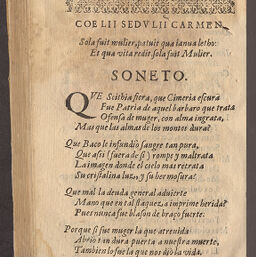 COELII SEDVLII CARMEN.
Sola fuit mulier, patuit qua ianua letho:
Et qua vita redit sola fuit Mulier.
SONETO.
QVE Scithia fiera, que Cimeria escura
Fue Patria de aquel barbaro que trata
Ofensa de muger, con alma ingrata,
Mas que las almas de los montes dura?
Que Baco le infundio sangre tan pura,
Que assi (fuera de si) rompe y maltrata
La imagen donde el cielo mas retrata
Su cristalina luz, y su hermosura?
Que mal la deuda general aduierte
Mano que en tal flaquez, a imprime herida?
Pues nunca fue blason de braço fuerte.
Porque si fue muger la que atreuida
Abrio tan dura puerta a nuestra muerte,
Tambien lo fue la que nos dio la vida.